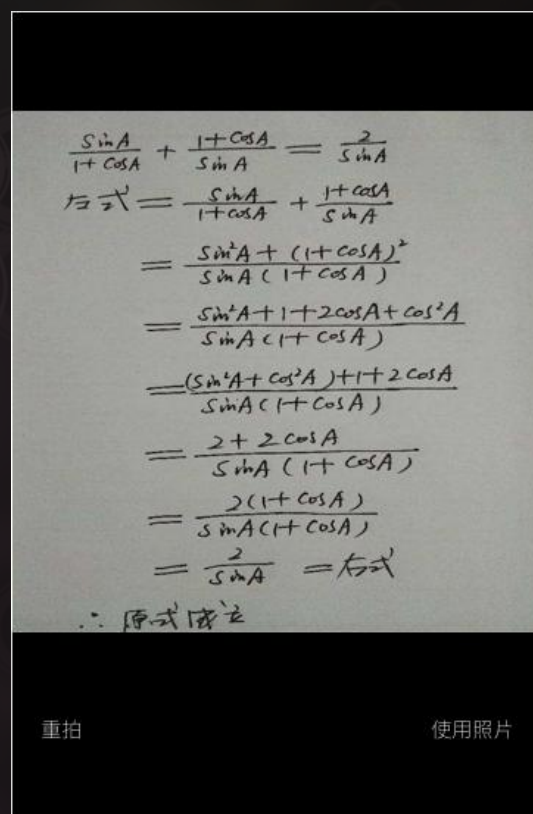 sinA/(1+cosA) + (1+cosA)/sinA = 2/sinA
左式 = sinA/(1+cosA) + (1+cosA)/sinA
= (sin²A+(1+cosA)²)/(sinA(1+cosA))
= (sin²A+1+2cosA+cos²A)/(sinA(1+cosA))
= ((sin²A+cos²A)+1+2cosA)/(sinA(1+cosA))
= (2+2cosA)/(sinA(1+cosA))
= 2(1+cosA)/(sinA(1+cosA))
= 2/sinA = 右式
∴ 原式成立
重拍 使用照片